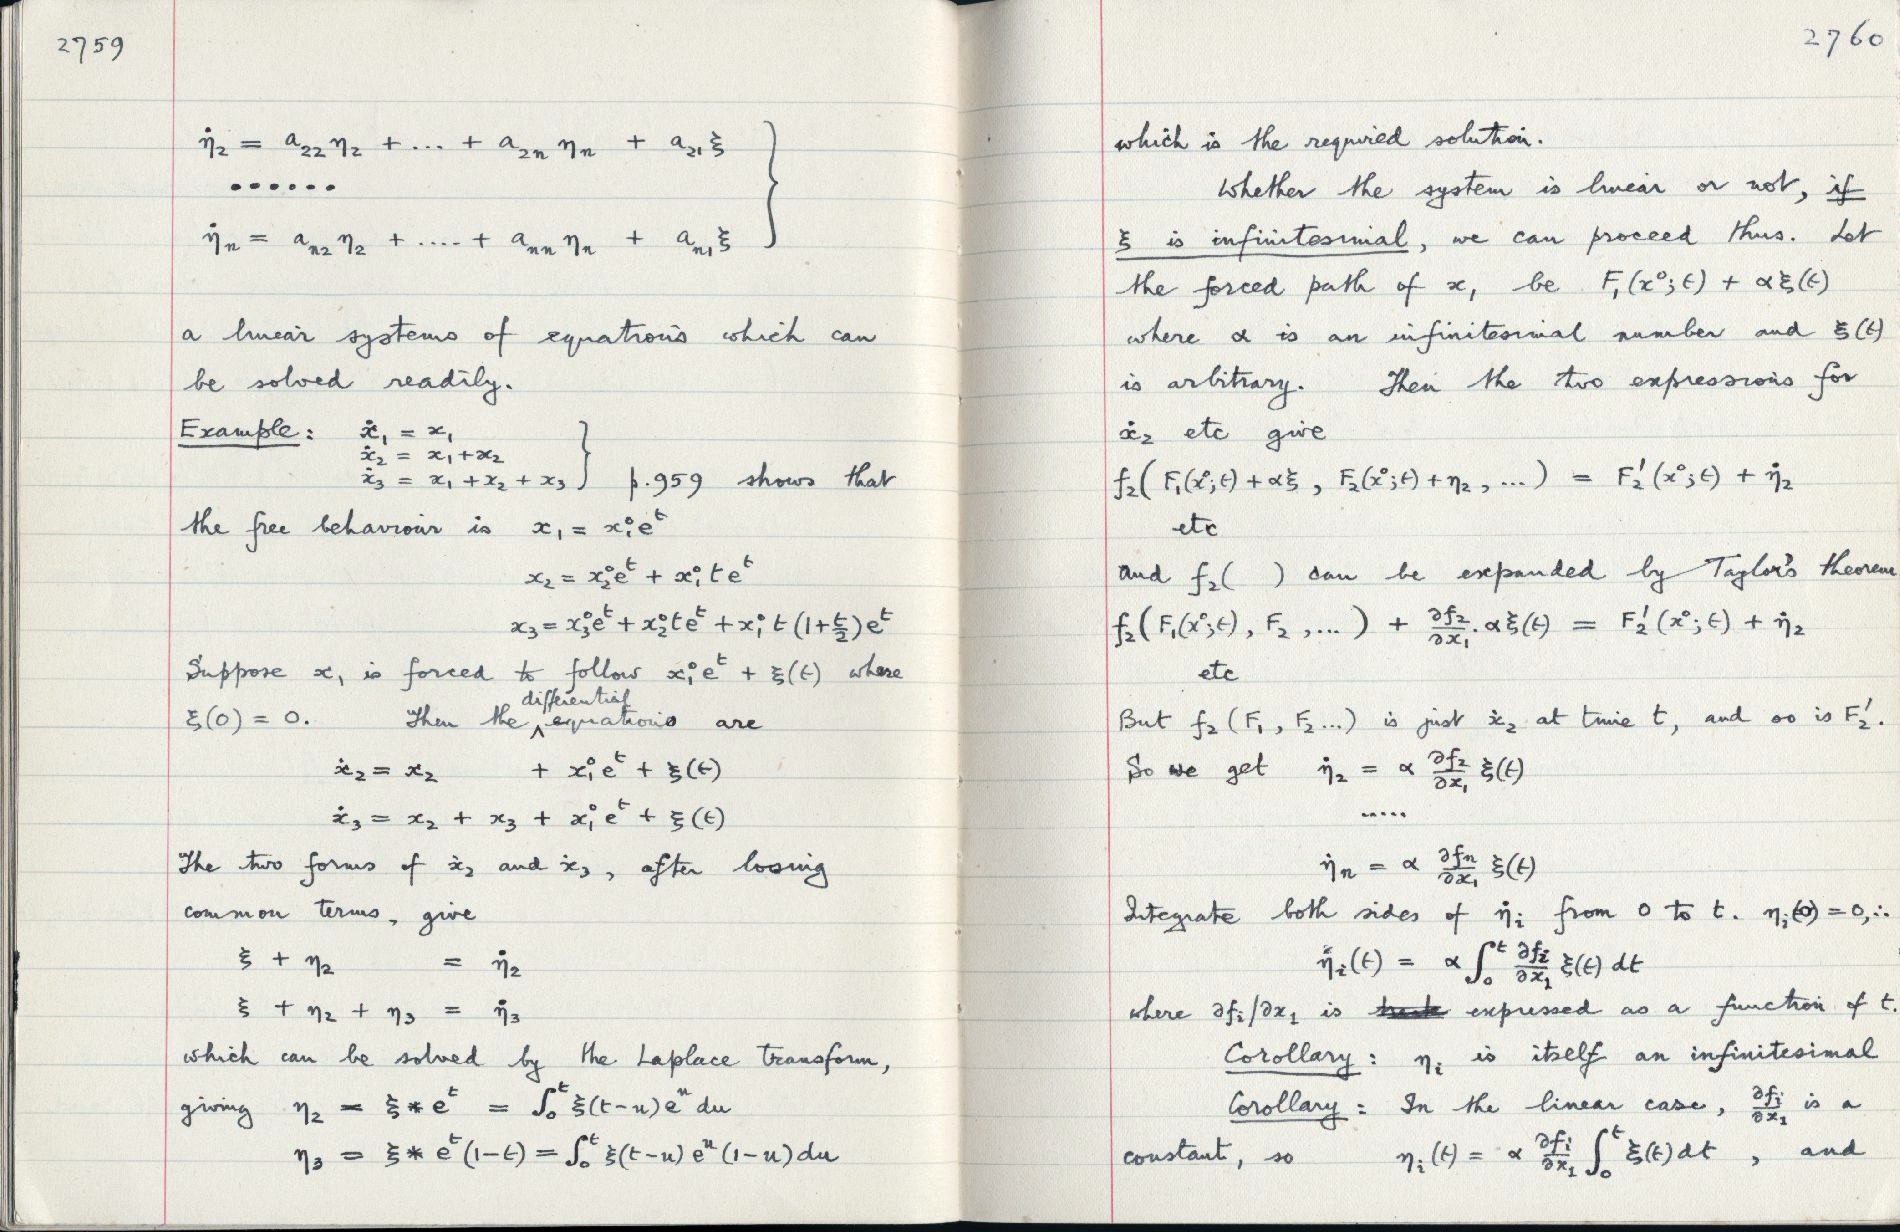 2759
η̇₂ = a₂₂ η₂ + ... + a₂ₙ ηₙ + a₂₁ ξ
......
η̇ₙ = aₙ₂ η₂ + .... + aₙₙ ηₙ + aₙ₁ ξ }
a linear systems of equations which can
be solved readily.
Example: ẋ₁ = x₁
ẋ₂ = x₁ + x₂
ẋ₃ = x₁ + x₂ + x₃ } p.959 shows that
the free behaviour is x₁ = x₁⁰eᵗ
x₂ = x₂⁰eᵗ + x₁⁰ t eᵗ
x₃ = x₃⁰eᵗ + x₂⁰teᵗ + x₁⁰ t (1+t/2) eᵗ
Suppose x₁ is forced to follow x₁⁰ eᵗ + ξ(t) where
ξ(0) = 0. Then the differential equations are
ẋ₂ = x₂ + x₁⁰ eᵗ + ξ(t)
ẋ₃ = x₂ + x₃ + x₁⁰ eᵗ + ξ(t)
The two forms of ẋ₂ and ẋ₃, after losing
common terms, give
ξ + η₂ = η̇₂
ξ + η₂ + η₃ = η̇₃
which can be solved by the Laplace transform,
giving η₂ = ξ * eᵗ = ∫₀ᵗ ξ(t-u) eᵘ du
η₃ = ξ * eᵗ(1-t) = ∫₀ᵗ ξ(t-u) eᵘ (1-u) du
2760
which is the required solution.
Whether the system is linear or not, if
ξ is infinitesimal, we can proceed thus. Let
the forced path of x₁ be F₁(x⁰;t) + αξ(t)
where α is an infinitesimal number and ξ(t)
is arbitrary. Then the two expressions for
ẋ₂ etc give
f₂( F₁(x⁰;t) + αξ , F₂(x⁰;t) + η₂ , ... ) = F₂'(x⁰;t) + η̇₂
etc
and f₂( ) can be expanded by Taylor's theorem
f₂( F₁(x⁰;t), F₂ ,... ) + ∂f₂/∂x₁ . αξ(t) = F₂'(x⁰;t) + η̇₂
etc
But f₂ (F₁ , F₂ ...) is just ẋ₂ at time t, and so is F₂'.
So we get η̇₂ = α ∂f₂/∂x₁ ξ(t)
.....
η̇ₙ = α ∂fₙ/∂x₁ ξ(t)
Integrate both sides of η̇ᵢ from 0 to t. ηᵢ(0) = 0, ∴
ηᵢ(t) = α ∫₀ᵗ ∂fᵢ/∂x₁ ξ(t) dt
where ∂fᵢ/∂x₁ is expressed as a function of t.
Corollary: ηᵢ is itself an infinitesimal
Corollary: In the linear case, ∂fᵢ/∂x₁ is a
constant, so ηᵢ(t) = α ∂fᵢ/∂x₁ ∫₀ᵗ ξ(t) dt , and